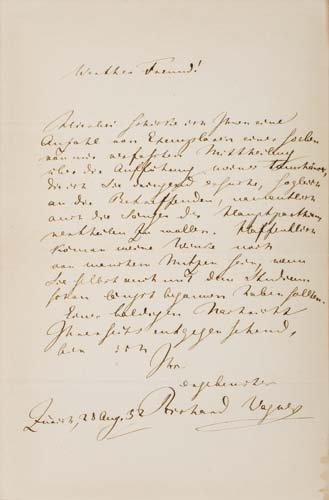 Werther Freund!
Hierbei schicke ich Ihnen eine
Anzahl von Exemplaren einer soeben
von mir verfassten Mittheilung
über die Aufführung meines Tannhäuser,
die ich Sie dringend ersuche, sogleich
an die Betreffenden, namentlich
auch die Sänger der Hauptpartien,
vertheilen zu wollen. Hoffentlich
können meine Winke noch
von manchem Nutzen sein, wenn
Sie selbst auch mit dem Studium
schon längst begonnen haben sollten.
Einer baldigen Nachricht
Ihrerseits entgegensehend,
bin ich
Ihr
ergebenster
Zürich, 28 Aug. 52 Richard Wagner